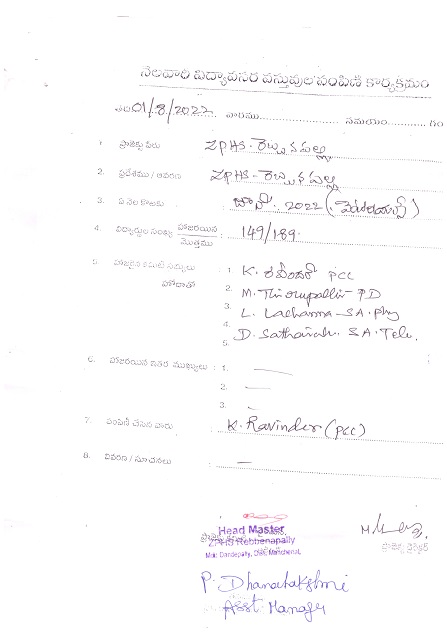 నెలవారి విద్యావసర వస్తువుల పంపిణి కార్యక్రమం
తేది 01/8/2022 వారము ............ సమయం ............ గం
1. ప్రాజెక్టు పేరు ZPHS - రెబ్బనపల్లి
2. ప్రదేశము / ఆవరణ ZPHS - రెబ్బనపల్లి
3. ఏ నెల కొఱకు : జూన్. 2022
4. విద్యార్థుల సంఖ్య హాజరయిన / మొత్తము : 149/189
5. హాజరైన కమిటి సభ్యులు : 1. K. రవీందర్ PCC
హోదాతో 2. M. Thirupathi - PD
3. L. Lachanna - SA. Phy
4. D. Sathaiah. S.A. Tel.
5.
6. హాజరయిన ఇతర ముఖ్యులు : 1. —
2. —
3. —
7. పంపిణీ చేసిన వారు : K. Ravinder (PCC)
8. వివరణ / సూచనలు : —
Head Master
ZPHS Rebbenapally
Mdl: Dandepally, Dist: Mancherial.
ప్రాజెక్టు డైరెక్టర్
P. Dhanalakshmi
Asst Manager